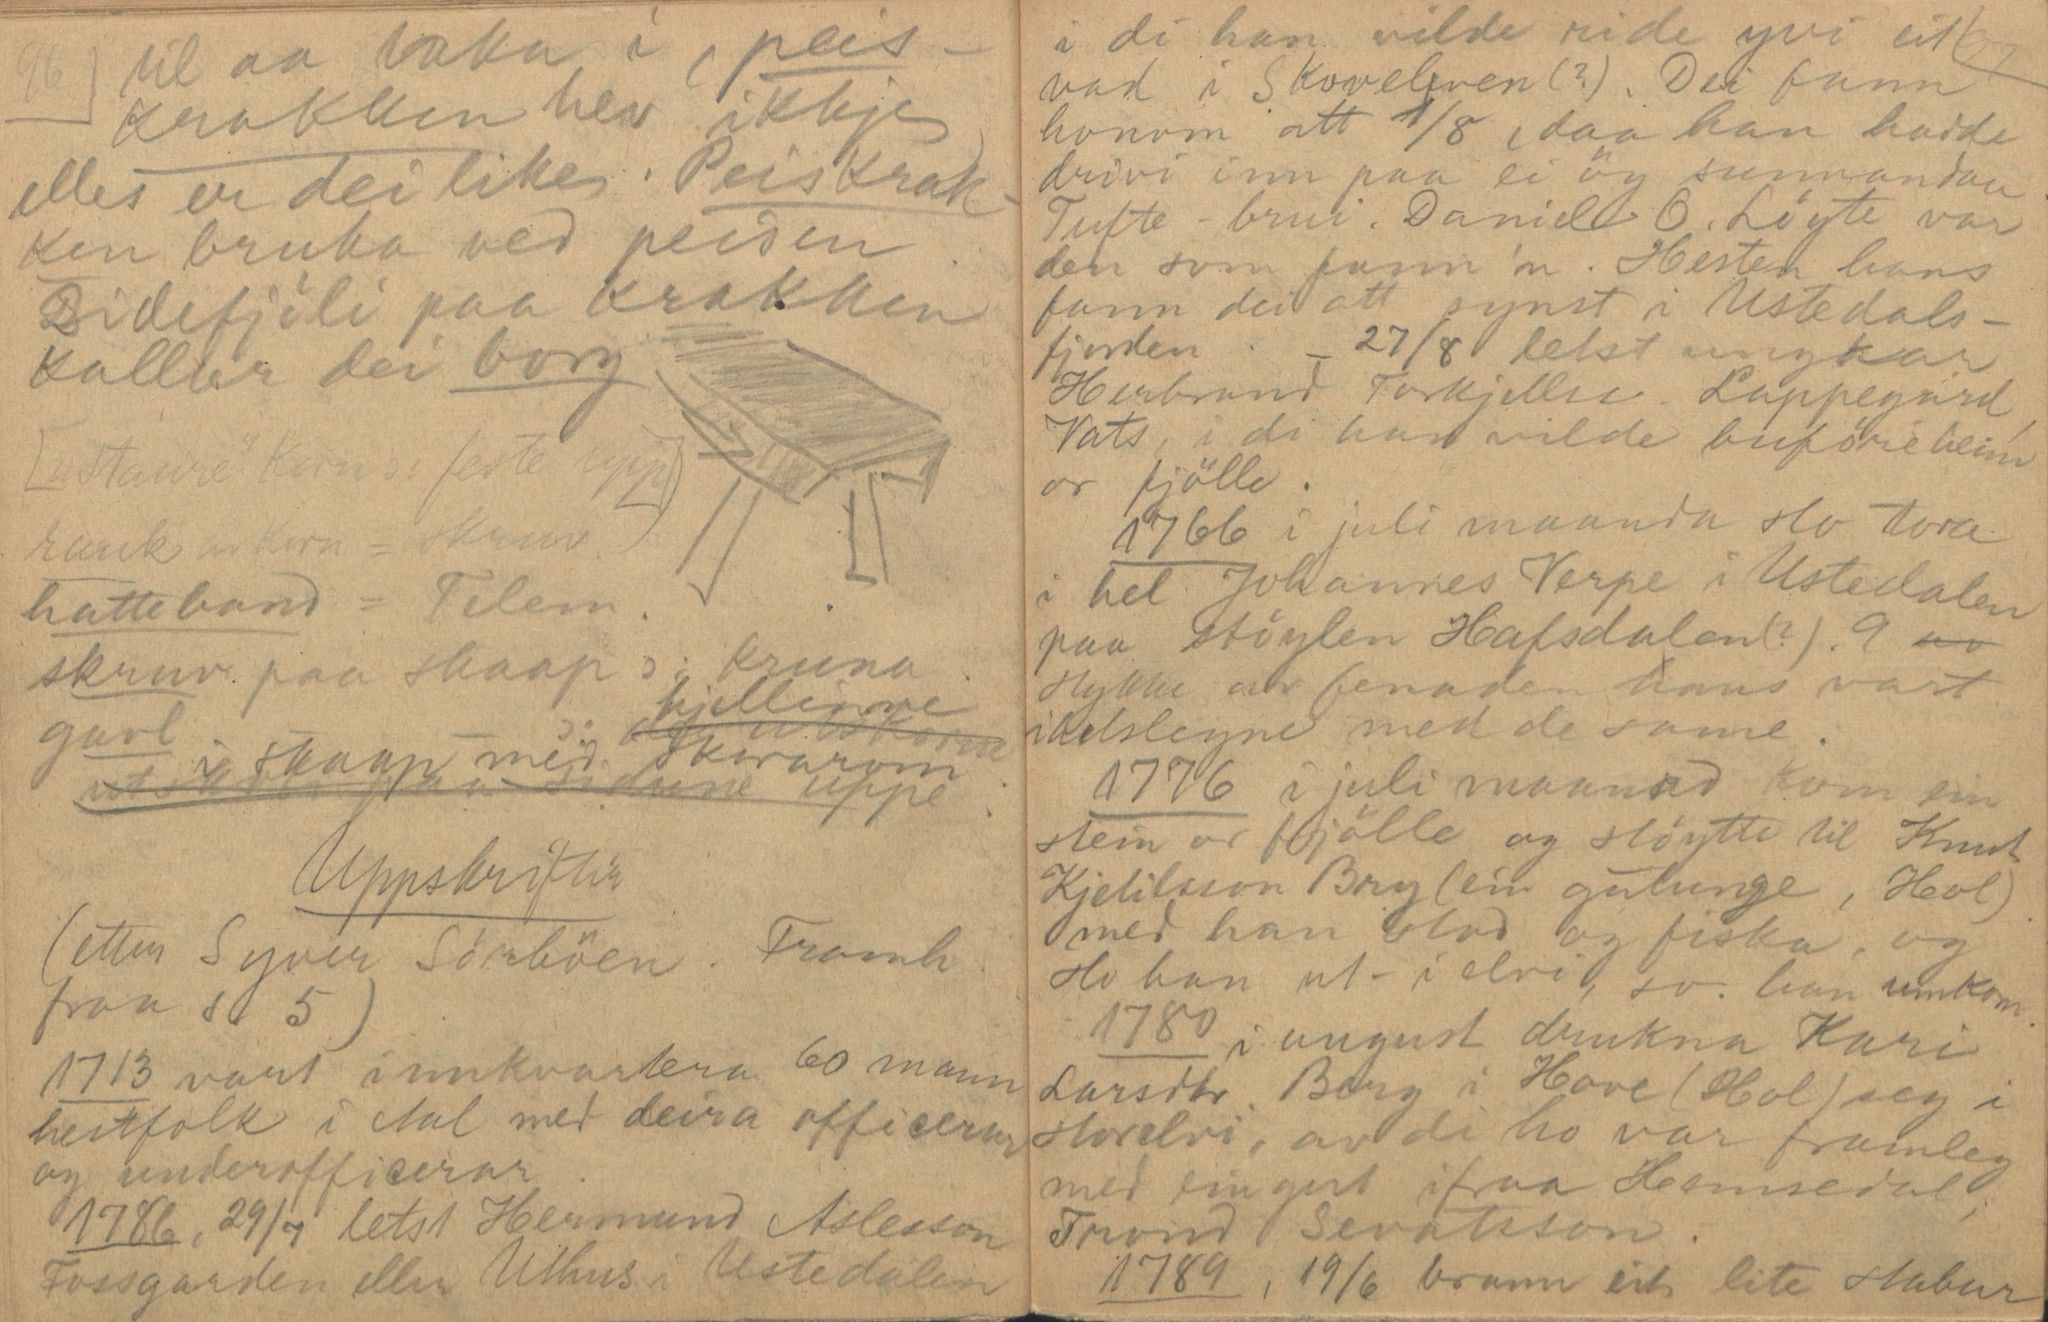 96]
til aa taka i, peis-
krakken hev ikkje
elles er dei like. Peiskrak-
ken bruka ved peisen.
Sidefjöli paa krakken
kallar dei borg
["staure" korn ɔ: feste upp]
rauk av korn = skruv.)
hatteband = Telem.
skruv paa skaap ɔ: kruna.
gavl ɔ: hjellinne
i skaap med skvarom
uppe.
Uppskrifter
(etter Syver Sörböen. Framh.
fraa s. 5)
1713 vart innkvartera 60 mann
hestfolk i Aal med deira officerar
og underofficerar.
1786, 29/7 letst Hermund Asleson
Fossgarden eller Uthus i Ustedalen
97
i di han vilde ride yvi eit
vad i Skovelven(?). Dei fann
honom att 1/8, daa han hadde
drivi inn paa ei öy sunnandaa
Tufte-brui. Daniel O. Löyte var
den som fann 'n. Hesten hans
fann dei att synst i Ustedals-
fjorden. - 27/8 letst ungkar
Herbrand Torkjellse. Lappegard,
Vats, i di han vilde buföre heim
or fjölle.
1766 i juli maanda slo tora
i hel Johannes Verpe i Ustedalen
paa stöylen Hafsdalen(?). 9 av
stykke av fenaden hans vart
ihelslegne med de same.
1776 i juli maanad kom ein
stein or fjölle og stöytte til Knut
Kjetilsson Bry (ein gutunge, Hol)
med han stod og fiska, og
slo han ut-i elvi, so han umkom.
1780 i august drukna Kari
Larsdtr. Berg i Hove (Hol) seg i
storelvi, av di ho var framleg
med ein gut ifraa Hemsedal,
Trond Sevatsson.
1789, 19/6 brann eit lite stabur